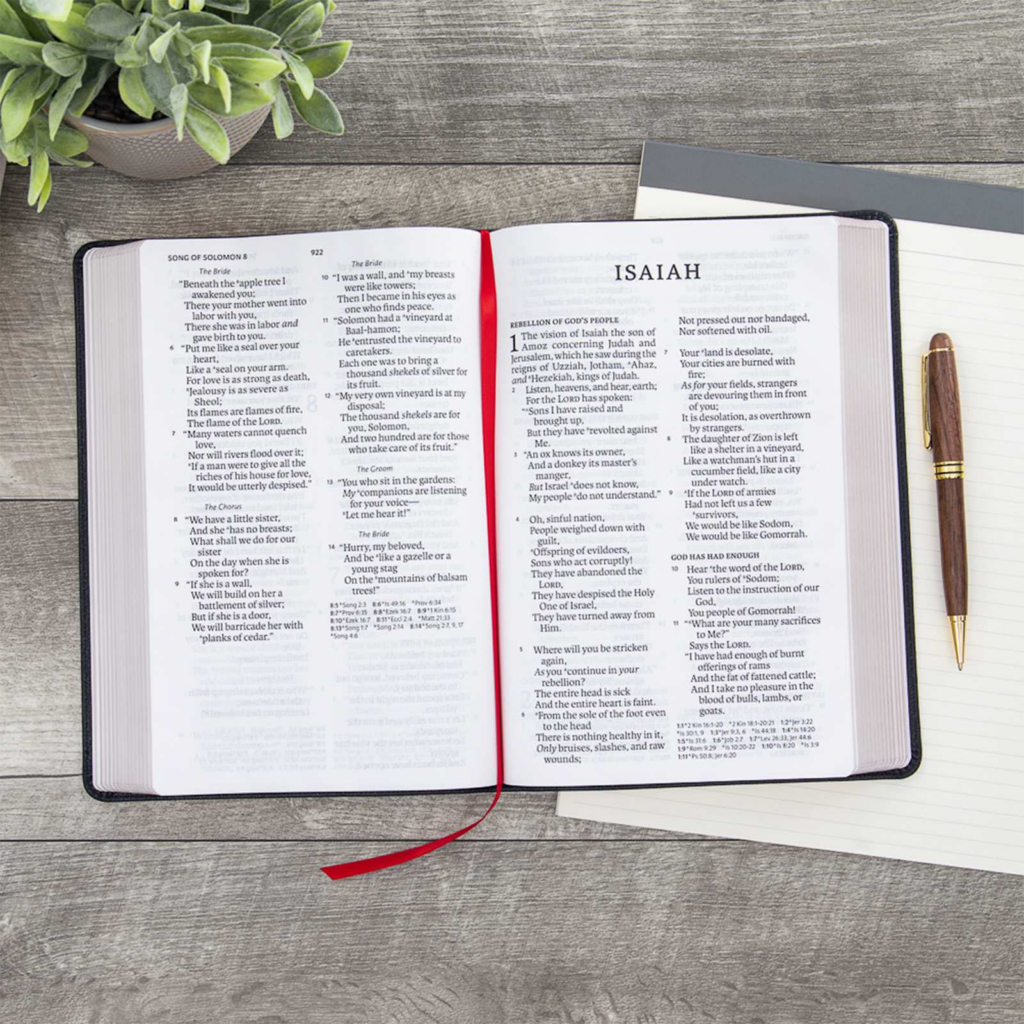 SONG OF SOLOMON 8
922
The Bride
“Beneath the ᵃapple tree I
awakened you;
There your mother went into
labor with you,
There she was in labor and
gave birth to you.
6 “Put me like a seal over your
heart,
Like a ᵃseal on your arm.
For love is as strong as death,
ᵇJealousy is as severe as
Sheol;
Its flames are flames of fire,
The flame of the LORD.
7 “Many waters cannot quench
love,
Nor will rivers flood over it;
ᵃIf a man were to give all the
riches of his house for love,
It would be utterly despised.”
The Chorus
8 “We have a little sister,
And she ᵃhas no breasts;
What shall we do for our
sister
On the day when she is
spoken for?
9 “If she is a wall,
We will build on her a
battlement of silver;
But if she is a door,
We will barricade her with
ᵃplanks of cedar.”
The Bride
10 “I was a wall, and ᵃmy breasts
were like towers;
Then I became in his eyes as
one who finds peace.
11 “Solomon had a ᵃvineyard at
Baal-hamon;
He ᵇentrusted the vineyard to
caretakers.
Each one was to bring a
thousand shekels of silver for
its fruit.
12 “My very own vineyard is at my
disposal;
The thousand shekels are for
you, Solomon,
And two hundred are for those
who take care of its fruit.”
The Groom
13 “You who sit in the gardens:
My ᵃcompanions are listening
for your voice—
ᵇLet me hear it!”
The Bride
14 “Hurry, my beloved,
And be ᵃlike a gazelle or a
young stag
On the ᵇmountains of balsam
trees!”
8:5 ᵃSong 2:3 8:6 ᵃIs 49:16 ᵇProv 6:34
8:7 ᵃProv 6:35 8:8 ᵃEzek 16:7 8:9 ᵃ1 Kin 6:15
8:10 ᵃEzek 16:7 8:11 ᵃEccl 2:4 ᵇMatt 21:33
8:13 ᵃSong 1:7 ᵇSong 2:14 8:14 ᵃSong 2:7, 9, 17
ᵇSong 4:6
ISAIAH
REBELLION OF GOD’S PEOPLE
1 The vision of Isaiah the son of
Amoz concerning Judah and
Jerusalem, which he saw during the
reigns of Uzziah, Jotham, ᵃAhaz,
and ᵇHezekiah, kings of Judah.
2 Listen, heavens, and hear, earth;
For the LORD has spoken:
“ᵃSons I have raised and
brought up,
But they have ᵇrevolted against
Me.
3 “An ox knows its owner,
And a donkey its master’s
manger,
But Israel ᵃdoes not know,
My people ᵇdo not understand.”
4 Oh, sinful nation,
People weighed down with
guilt,
ᵃOffspring of evildoers,
Sons who act corruptly!
They have abandoned the
LORD,
They have despised the Holy
One of Israel,
They have turned away from
Him.
5 Where will you be stricken
again,
As you ᵃcontinue in your
rebellion?
The entire head is sick
And the entire heart is faint.
6 ᵃFrom the sole of the foot even
to the head
There is nothing healthy in it,
Only bruises, slashes, and raw
wounds;
Not pressed out nor bandaged,
Nor softened with oil.
7 Your ᵃland is desolate,
Your cities are burned with
fire;
As for your fields, strangers
are devouring them in front
of you;
It is desolation, as overthrown
by strangers.
8 The daughter of Zion is left
like a shelter in a vineyard,
Like a watchman’s hut in a
cucumber field, like a city
under watch.
9 ᵃIf the LORD of armies
Had not left us a few
ᵇsurvivors,
We would be like Sodom,
We would be like Gomorrah.
GOD HAS HAD ENOUGH
10 Hear ᵃthe word of the LORD,
You rulers of ᵇSodom;
Listen to the instruction of our
God,
You people of Gomorrah!
11 “ᵃWhat are your many sacrifices
to Me?”
Says the LORD.
“I have had enough of burnt
offerings of rams
And the fat of fattened cattle;
And I take no pleasure in the
blood of bulls, lambs, or
goats.
1:1 ᵃ2 Kin 16:1-20 ᵇ2 Kin 18:1-20:21 1:2 ᵃJer 3:22
ᵇIs 30:1, 9 1:3 ᵃJer 9:3, 6 ᵇIs 44:18 1:4 ᵃIs 14:20
1:5 ᵃIs 31:6 1:6 ᵃJob 2:7 1:7 ᵃLev 26:33, Jer 44:6
1:9 ᵃRom 9:29 ᵇIs 10:20-22 1:10 ᵃIs 8:20 ᵇIs 3:9
1:11 ᵃPs 50:8; Jer 6:20